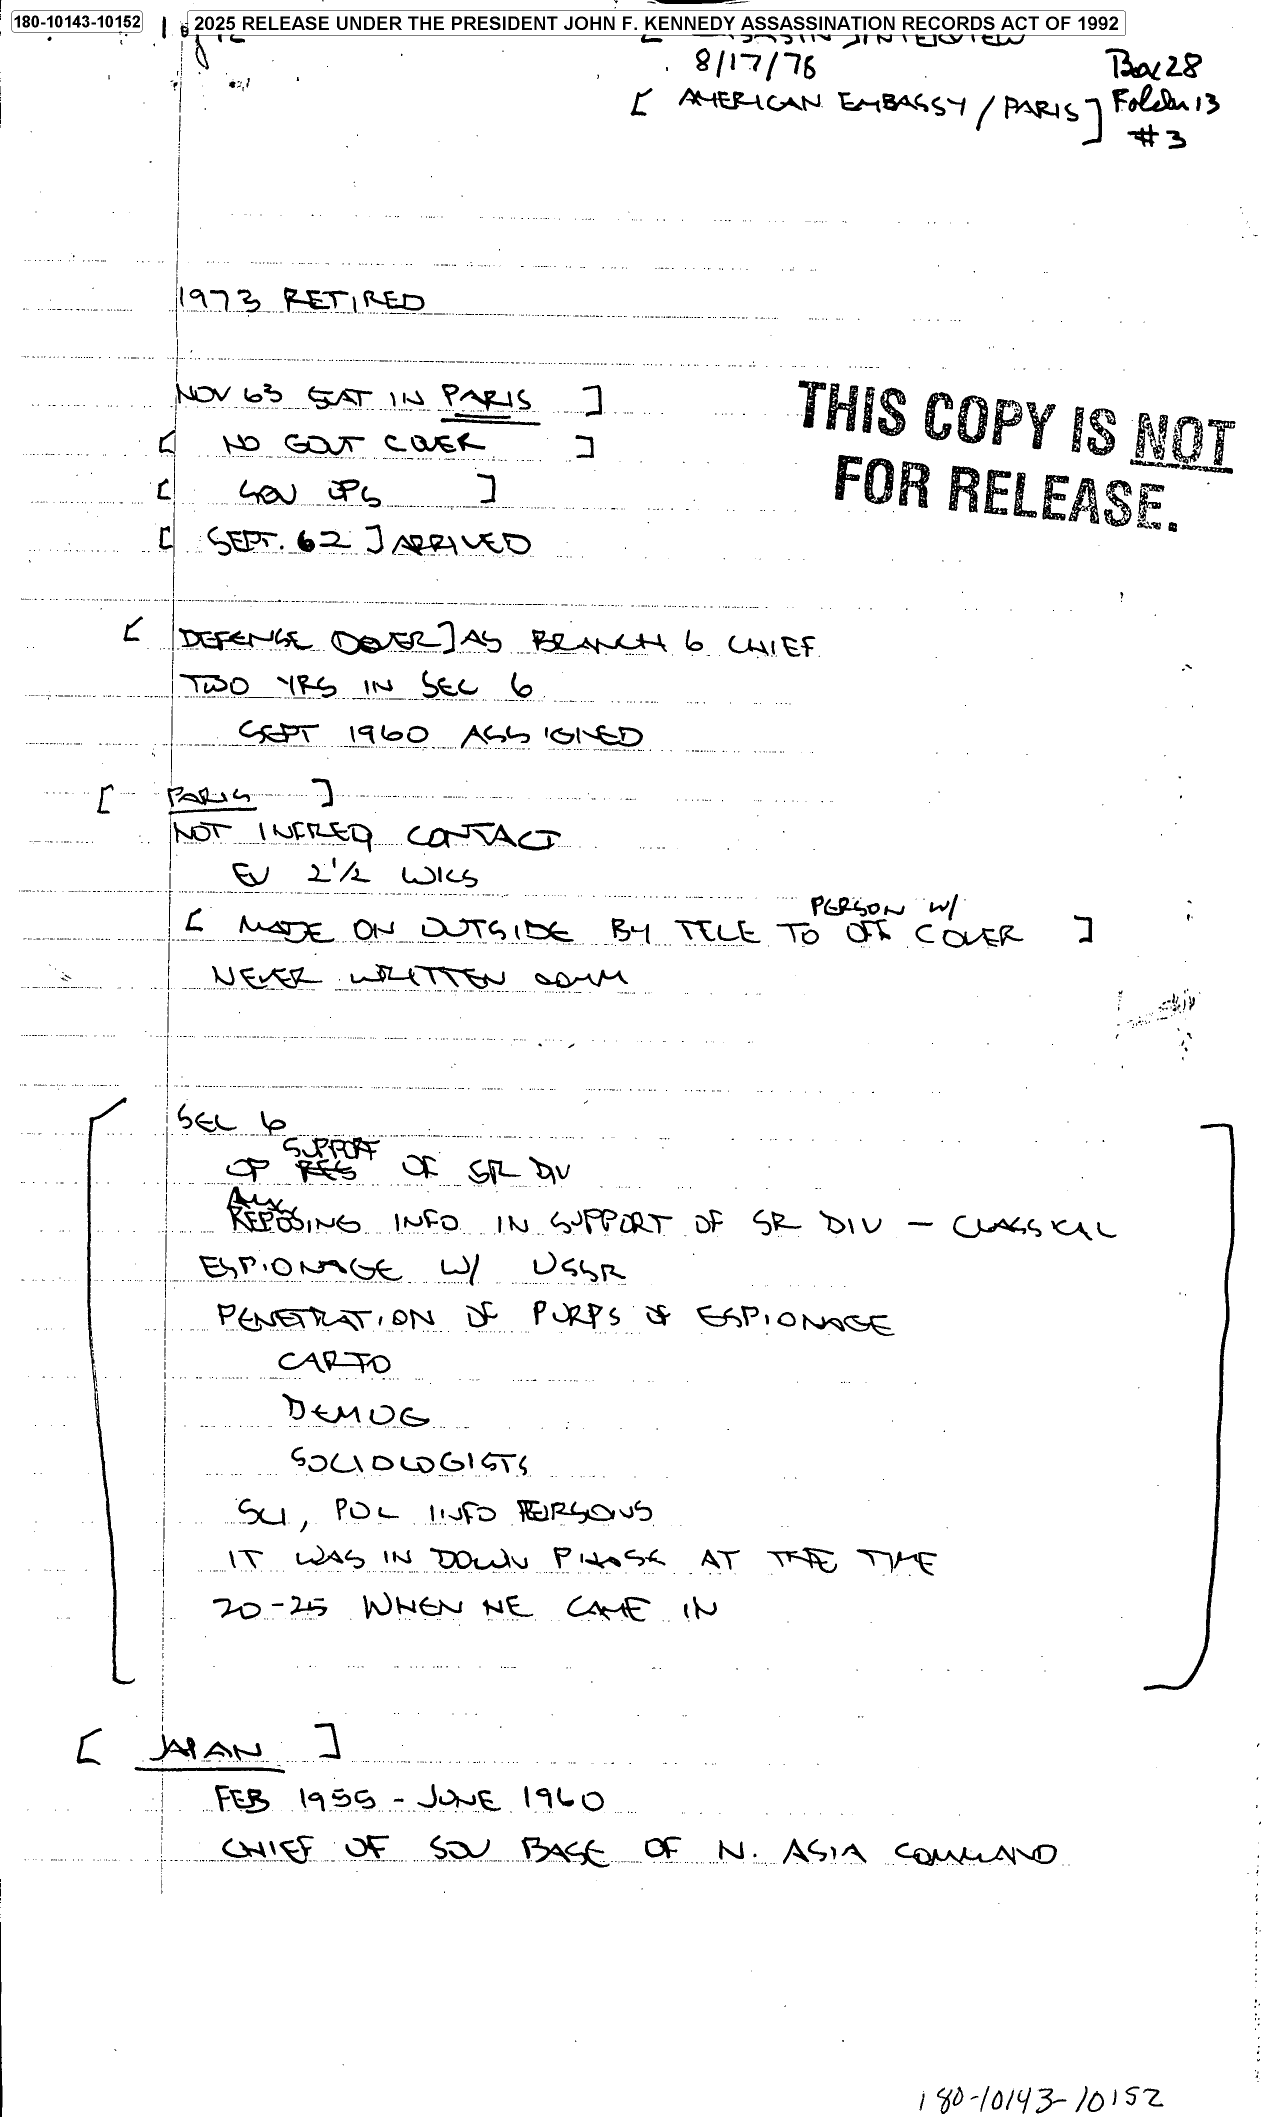 180-10143-10152
2025 RELEASE UNDER THE PRESIDENT JOHN F. KENNEDY ASSASSINATION RECORDS ACT OF 1992
INTERVIEW
8/17/78
Box 28
[ AMERICAN EMBASSY / PARIS ]
Folder 13
#3
1973 RETIRED
NOV 63 STAT IN PARIS ]
[ NO GOVT COVER ]
[ SOV OPS ]
[ SEPT. 62 ] ARRIVED
THIS COPY IS NOT
FOR RELEASE.
[ DEFENSE COVER ] AS BRANCH 6 CHIEF
TWO YRS IN SEC 6
SEPT 1960 ASSIGNED
[ PARIS ]
NOT INFREQ CONTACT
EV 2 1/2 WKS
PERSON W/
[ MADE ON OUTSIDE BY TELE TO OFF COVER ]
NEVER WRITTEN COMM
SEC 6
SUPPORT
OP RES OF SR DIV
INFO IN SUPPORT OF SR DIV - CLASSICAL
ESPIONAGE W/ USSR
PENETRATION OF PURPS OF ESPIONAGE
CARTO
DEMOG
SOCIOLOGISTS
SCI, POL INFO PERSONS
IT WAS IN DOWN PHASE AT THE TIME
20-25 WHEN HE CAME IN
[ JAPAN ]
FEB 1955 - JUNE 1960
CHIEF OF SOV BASE OF N. ASIA COMMAND
180-10143-10152